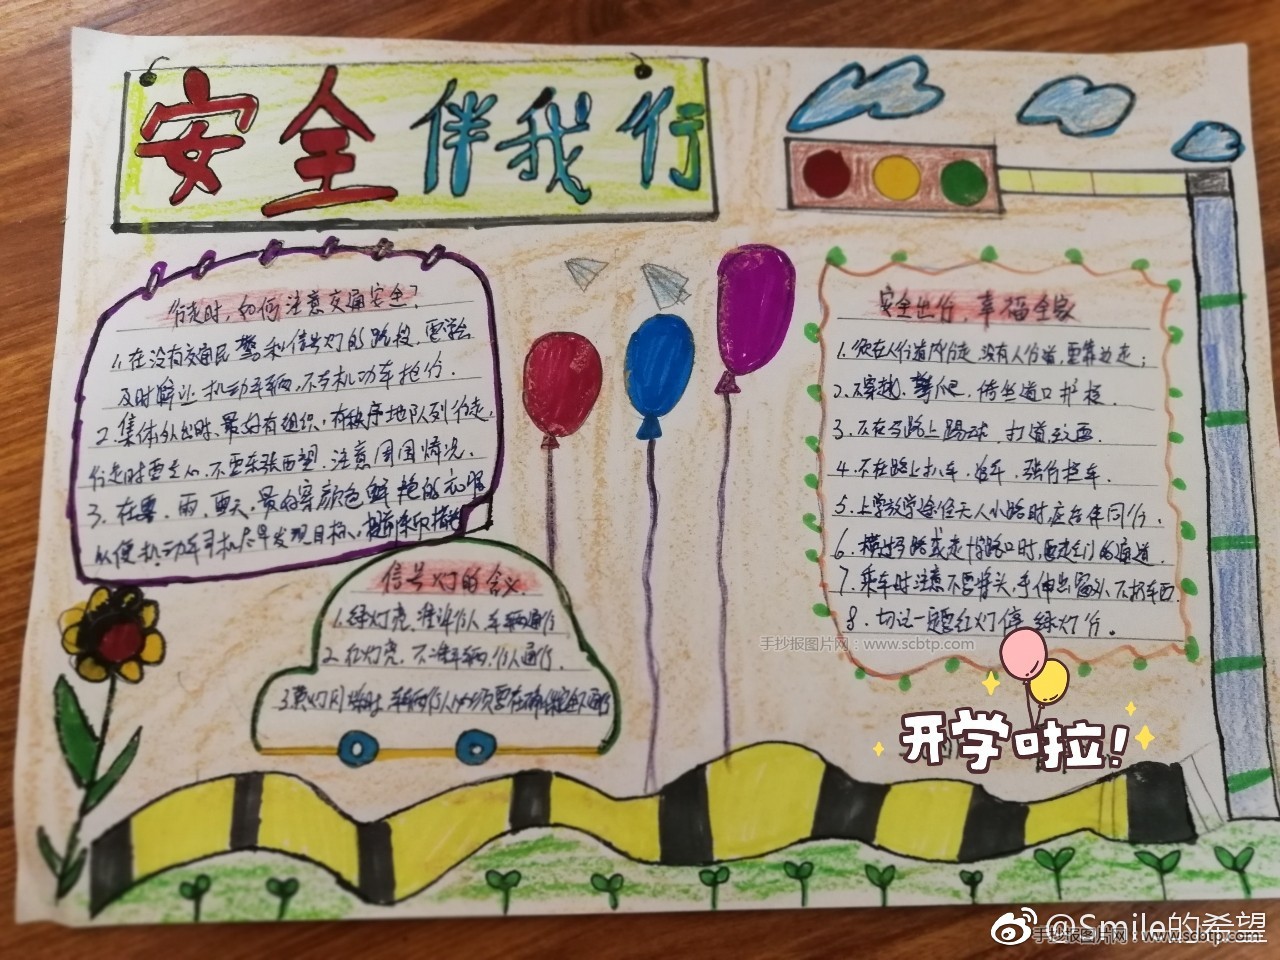 安全伴我行
行走时,如何注意交通安全?
1,在没有交通民警和信号灯的路段,要学会
及时避让机动车辆,不与机动车抢行.
2.集体外出时,最好有组织,有秩序地队列行走,
行走时要专心,不要东张西望.注意周围情况.
3.在雾、雨、雪天,最好穿颜色鲜艳的衣服
以便机动车司机尽早发现目标,提前采取措施
信号灯的含义
1.绿灯亮,准许行人,车辆通行
2.红灯亮,不准车辆.行人通行.
3黄灯闪烁时,车辆行人必须要在确保安全下通行
安全出行,幸福全家
1.须在人行道内行走,没有人行道,要靠边走;
2.不穿越、攀爬、倚坐道口护栏.
3.不在马路上踢球、打道玩耍.
4.不在路上扒车、追车、强行拦车.
5.上学放学途径无人小路时,应结伴同行.
6.横过马路或走十字路口时,要走
7.乘车时注意不要将头、手伸出窗外、不扔东西.
8.切记一定要红灯停绿灯行。
手抄报图片网:www.scbtp.com
开学啦!
@Smile的希望
手抄报图片网:www.scbtp.com